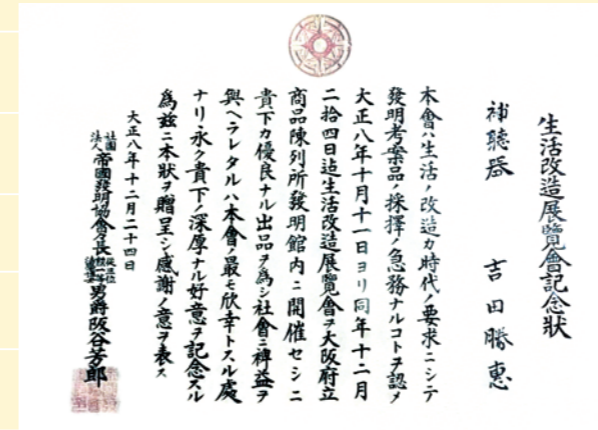 生活改造展覽會記念狀
補聽器　吉田勝惠
本會ハ生活ノ改造カ時代ノ要求ニシテ
發明考案品ノ採擇ノ急務ナルコトヲ認メ
大正八年十月十一日ヨリ同年十二月
二拾四日迠生活改造展覽會ヲ大阪府立
商品陳列所發明館内ニ開催セシニ
貴下カ優良ナル出品ヲ爲シ社會ニ裨益ヲ
與ヘラレタルハ本會ノ最モ欣幸トスル處
ナリ永ク貴下ノ深厚ナル好意ヲ記念スル
爲玆ニ本狀ヲ贈呈シ感謝ノ意ヲ表ス
大正八年十二月二十四日
社團法人帝國發明協會々長男爵阪谷芳郎